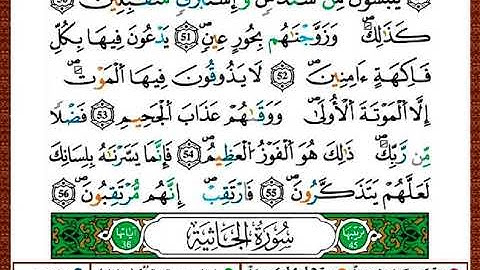 يَلْبَسُونَ مِن سُندُسٍ وَإِسْتَبْرَقٍ مُّتَقَٰبِلِينَ
كَذَٰلِكَ وَزَوَّجْنَٰهُم بِحُورٍ عِينٍ 51 يَدْعُونَ فِيهَا بِكُلِّ
فَٰكِهَةٍ ءَامِنِينَ 52 لَا يَذُوقُونَ فِيهَا الْمَوْتَ
إِلَّا الْمَوْتَةَ الْأُولَىٰ وَوَقَىٰهُمْ عَذَابَ الْجَحِيمِ 53 فَضْلًا
مِّن رَّبِّكَ ذَٰلِكَ هُوَ الْفَوْزُ الْعَظِيمُ 54 فَإِنَّمَا يَسَّرْنَٰهُ بِلِسَانِكَ
لَعَلَّهُمْ يَتَذَكَّرُونَ 55 فَارْتَقِبْ إِنَّهُم مُّرْتَقِبُونَ 56
ترتيبها 45 سُورَةُ الْجَاثِيَةِ آياتها 36